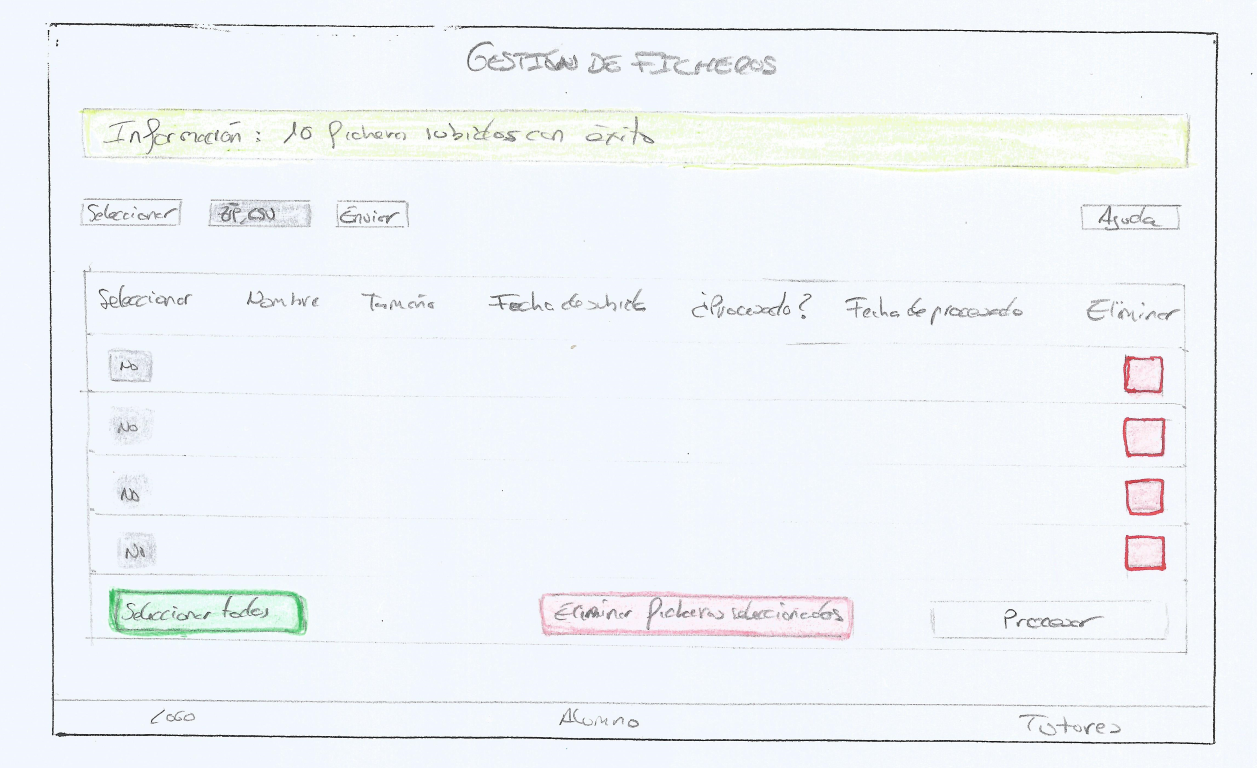 GESTIÓN DE FICHEROS
Información: 10 ficheros subidos con éxito
Seleccionar ZIP, CSV Enviar Ayuda
Seleccionar Nombre Tamaño Fecha de subida ¿Procesado? Fecha de procesado Eliminar
No
No
No
No
Seleccionar todos Eliminar ficheros seleccionados Procesar
LOGO Alumno Tutores